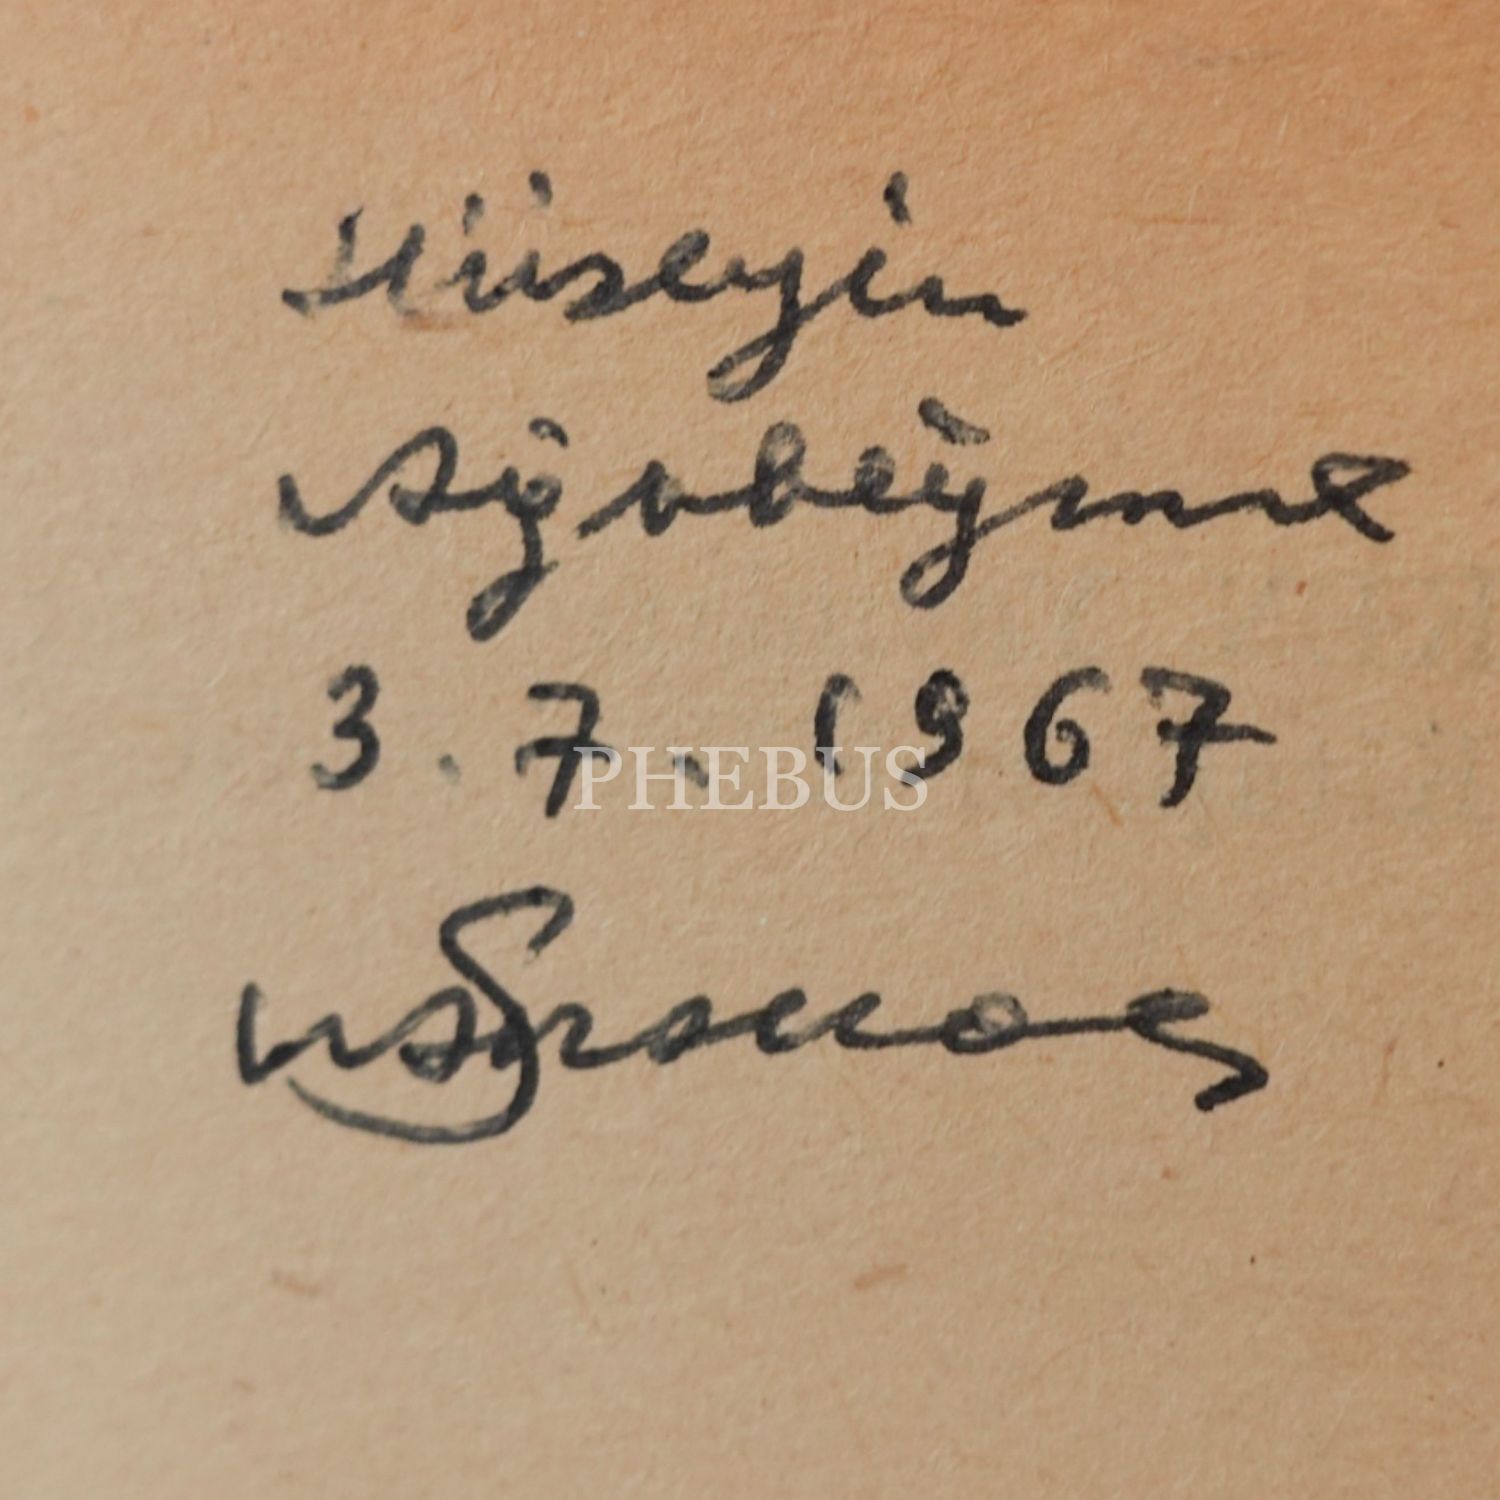 Hüseyin
Ağabeyime
3.7.1967
PHEBUS